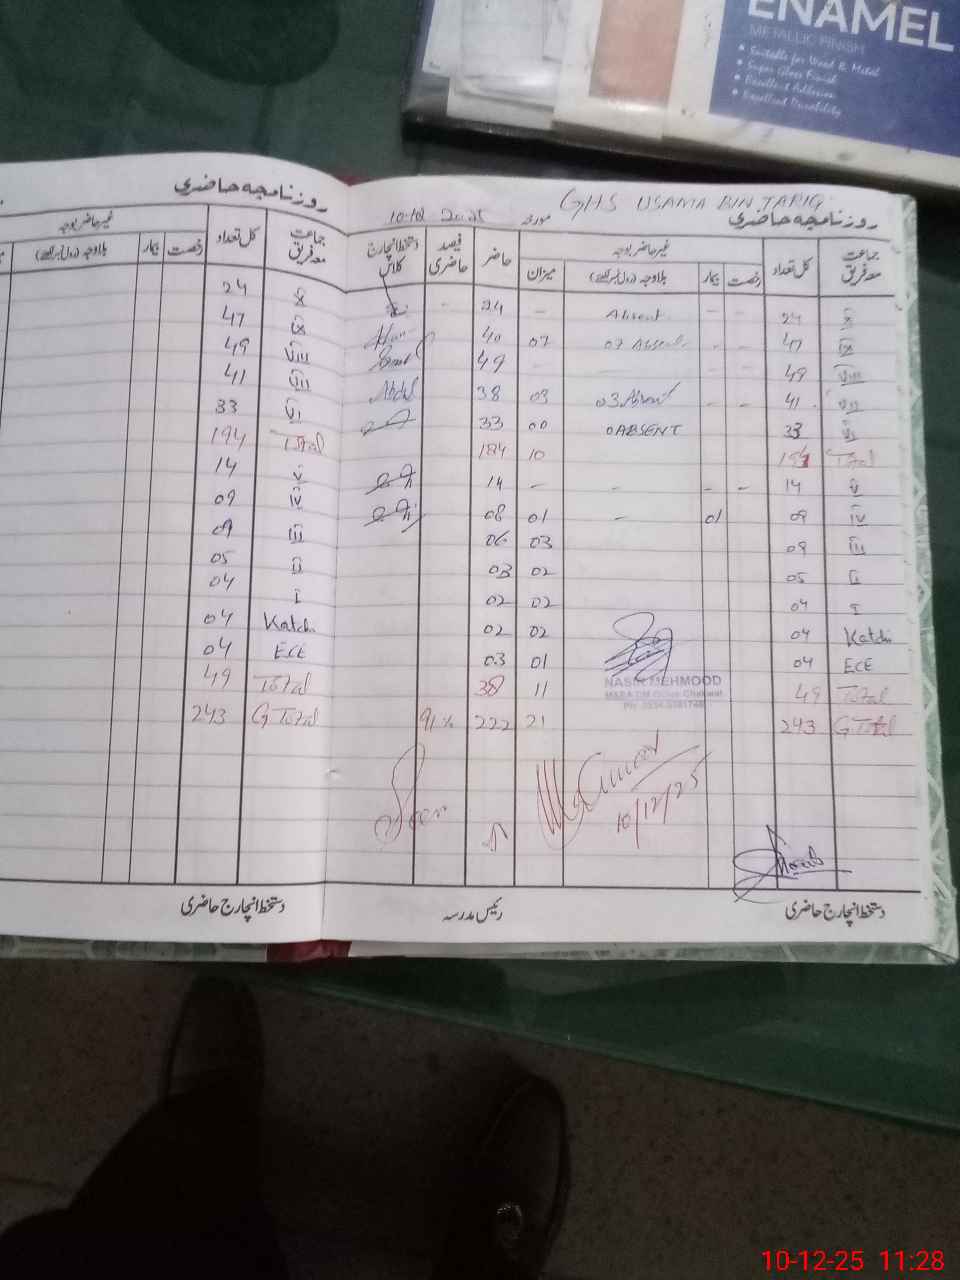 ENAMEL
METALLIC FINISH
• Suitable for Wood & Metal
• Super Gloss Finish
• Excellent Adhesion
• Excellent Durability
GHS USAMA BIN TARIQ
روزنامچہ حاضری
مورخہ 10-12-2025
جماعت معہ فریق کل تعداد غیر حاضر بوجہ حاضر فیصد حاضری دستخط انچارج کلاس
رخصت بیمار بلاوجہ (رول نمبر لکھیے) میزان
X 24 - - Absent - 24 -
IX 47 - - 07 Absent 07 40
VIII 49 - - - - 49
VII 41 - - 03 Absent 03 38 Abdul
VI 33 0 ABSENT 00 33
Total 194 10 184
V 14 - - - - 14
IV 09 01 - 01 08
III 09 03 06
II 05 02 03
I 04 02 02
Katchi 04 02 02
ECE 04 01 03
Total 49 11 38
G Total 243 21 222 91%
NASIR MEHMOOD
10/12/25
دستخط انچارج حاضری
رئیس مدرسہ
روزنامچہ حاضری
جماعت معہ فریق کل تعداد غیر حاضر بوجہ
رخصت بیمار بلاوجہ (رول نمبر لکھیے)
X 24
IX 47
VIII 49
VII 41
VI 33
Total 194
V 14
IV 09
III 09
II 05
I 04
Katchi 04
ECE 04
Total 49
G Total 243
دستخط انچارج حاضری
10-12-25 11:28